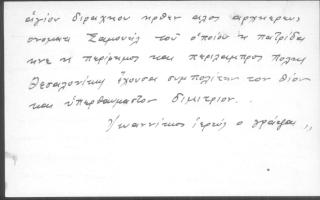 ἁγίου διραχιου ηρθεν αλος αρχιερευς
ονοματι Σαμουὴλ τοῦ ὁποίου ἡ πατρίδα
ηνε η περίφημος και περίλαμπρος πολις
Θεσαλονίκη ἔχουσα συμπολίτην τον θίον
και ὑπερθαυμαστον διμιτριον.
Ἰωαννίκιος ἱερεὺς ο γράψας